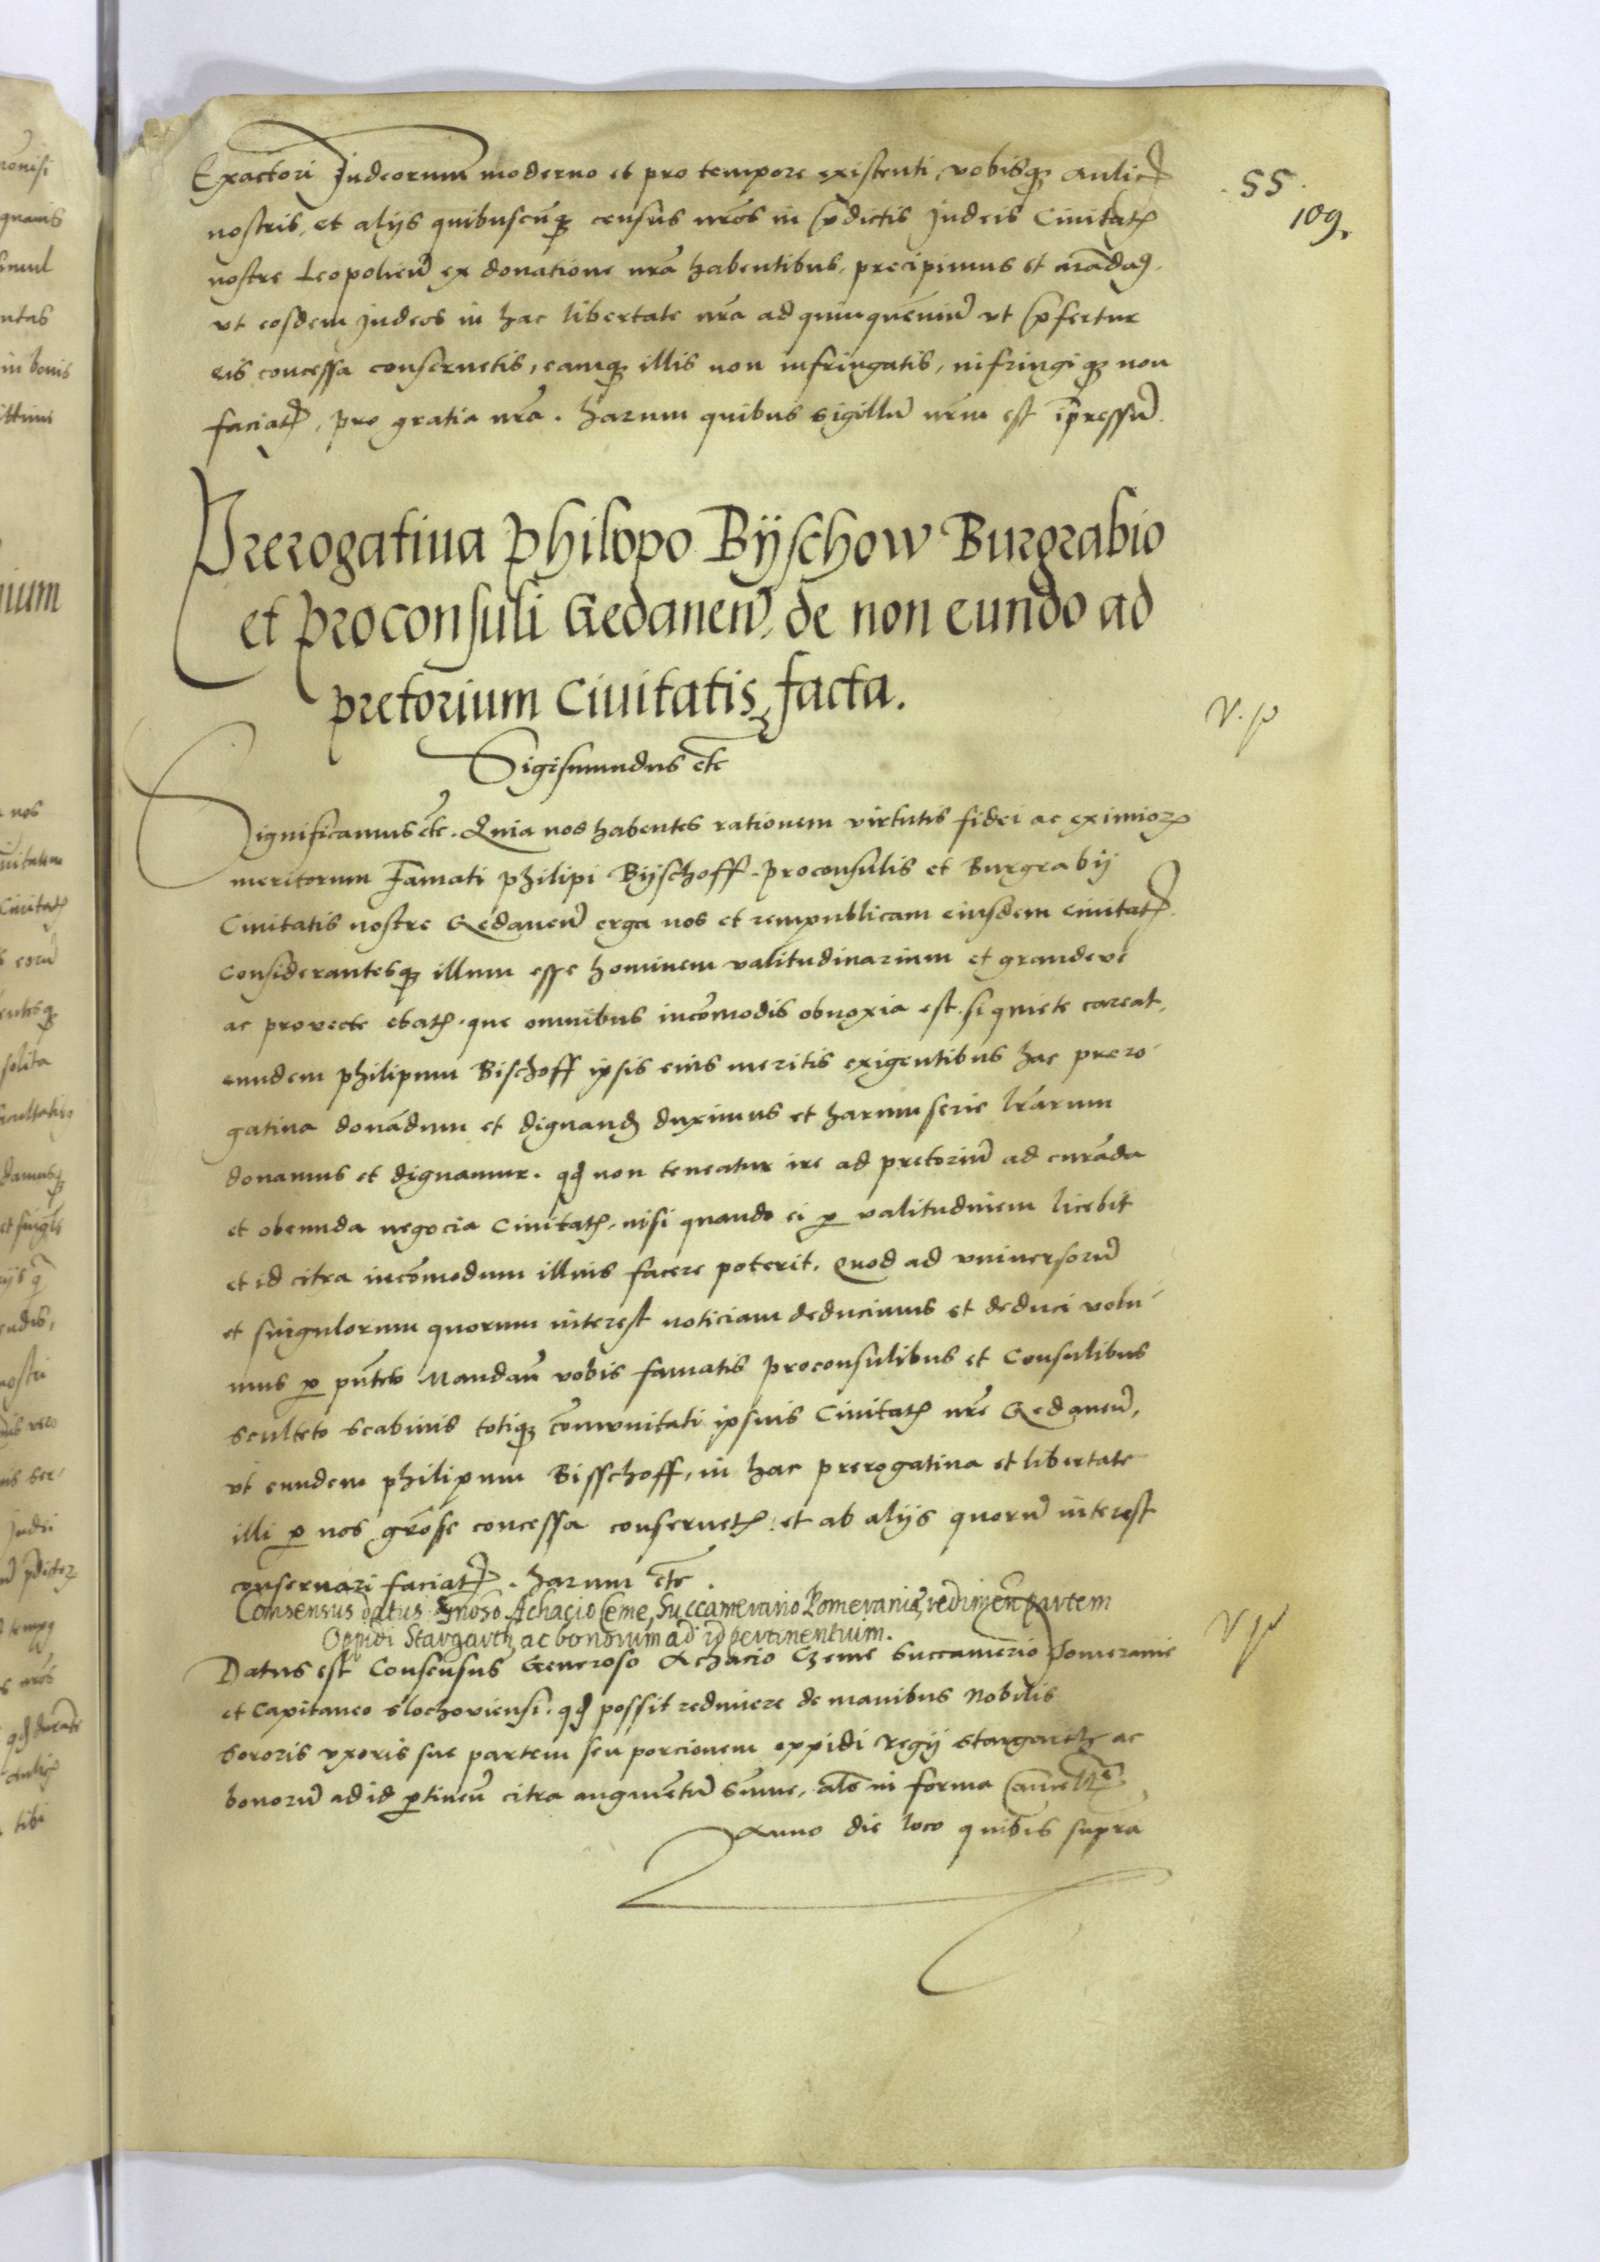 Exactori Judeorum moderno et pro tempore existenti, vobisq3 aulic̃
nostris, et alijs quibuscũq3 census nr̃os in p̃dictis Judeis Civitatꝭ
nostre Leopolien̄ ex donatione nr̃a habentibus, precipimus et mãdaꝰ.
vt eosdem Judeos in hac libertate nr̃a ad quinquẽniũ vt p̃fertur
eis concessa conseruetis, eamq3 illis non infringatis, infringiq3 non
faciatꝭ, pro gratia nr̃a. harum quibus sigillũ nr̃m est ĩpressũ.
Prerogatiua Philopo Bijschow Burgrabio
et proconsuli Gedanen̄, de non eundo ad
pretorium Ciuitatis facta.
Sigismundus etc̃
Significamus etc̃. Quia nos habentes rationem virtutis fidei ac eximioꝝ
meritorum Famati Philipi Bijschoff proconsulis et Burgrabij
Ciuitatis nostre Gedanen̄ erga nos et rempublicam eiusdem ciuitatꝭ.
Considerantesq3 illum esse hominem valitudinarium et grandeve
ac provecte etatꝭ. que omnibus incõmodis obnoxia est si quiete careat,
eundem philipum Bischoff ipsis eius meritis exigentibus hac prero
gatiua donãdum et dignand̃ duximus et harum serie lr̃arum
donamus et dignamur. qd̃ non teneatur ire ad pretoriũ ad curãda
et obeunda negocia Ciuitatꝭ, nisi quando ei ꝑ valitudinem licebit
et id citra incõmodum illius facere poterit. Quod ad vniuersorũ
et singulorum quorum interest noticiam deducimus et deduci volu
mus ꝑ pñtes Mandan̄ vobis famatis proconsulibus et Consulibus
sculteto scabinis totiq3 cõmunitati ipsius Ciuitatꝭ nr̃e Gedanen̄,
vt eundem philipum Bisschoff, in hac prerogatiua et libertate
illi ꝑ nos gr̃ose concessa conseruetꝭ. et ab alijs quorũ interest
conseruari faciatꝭ. harum etc̃.
Consensus datus Gñoso Achacio Ceme, Succamerario Pomeraniæ, redimen̄ partem
Oppidi Stargarth ac bonorum ad id pertinentium.
Datus est Consensus Generoso Achacio Czeme Succamerio Pomeranie
et Capitaneo Slochoviensi. qd̃ possit redimere de manibus Nobilis
sororis vxoris sue partem seu porcionem oppidi regij Stargarth ac
bonorũ ad id ꝑtinen̄ citra augmentũ sũme, als in forma
Anno die loco quibus supra
55.
109.
V. p
V p